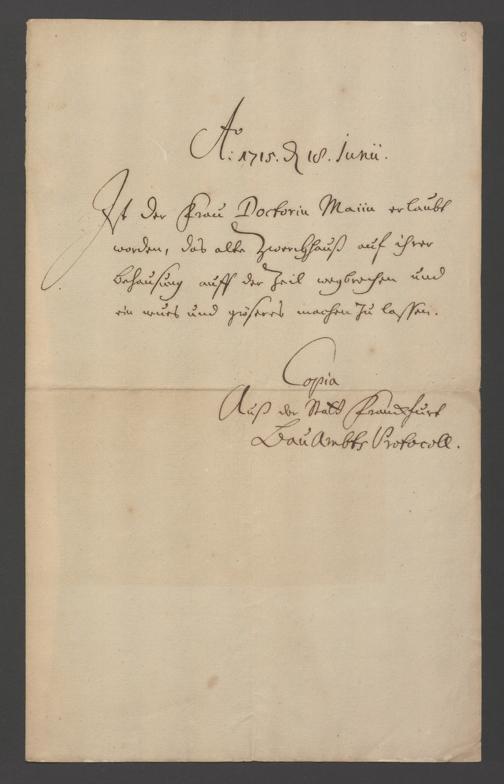 Aō: 1715. d 18. Junii.
Ist der Frau Doctorin Maiin erlaubt
worden, das alte Zwerchhauß auf ihrer
behausung auff der Zeil wegbrechen und
ein neues und gröseres machen zu lassen.
Copia
Auß der Statt Franckfurt
BauAmbts Protocoll.